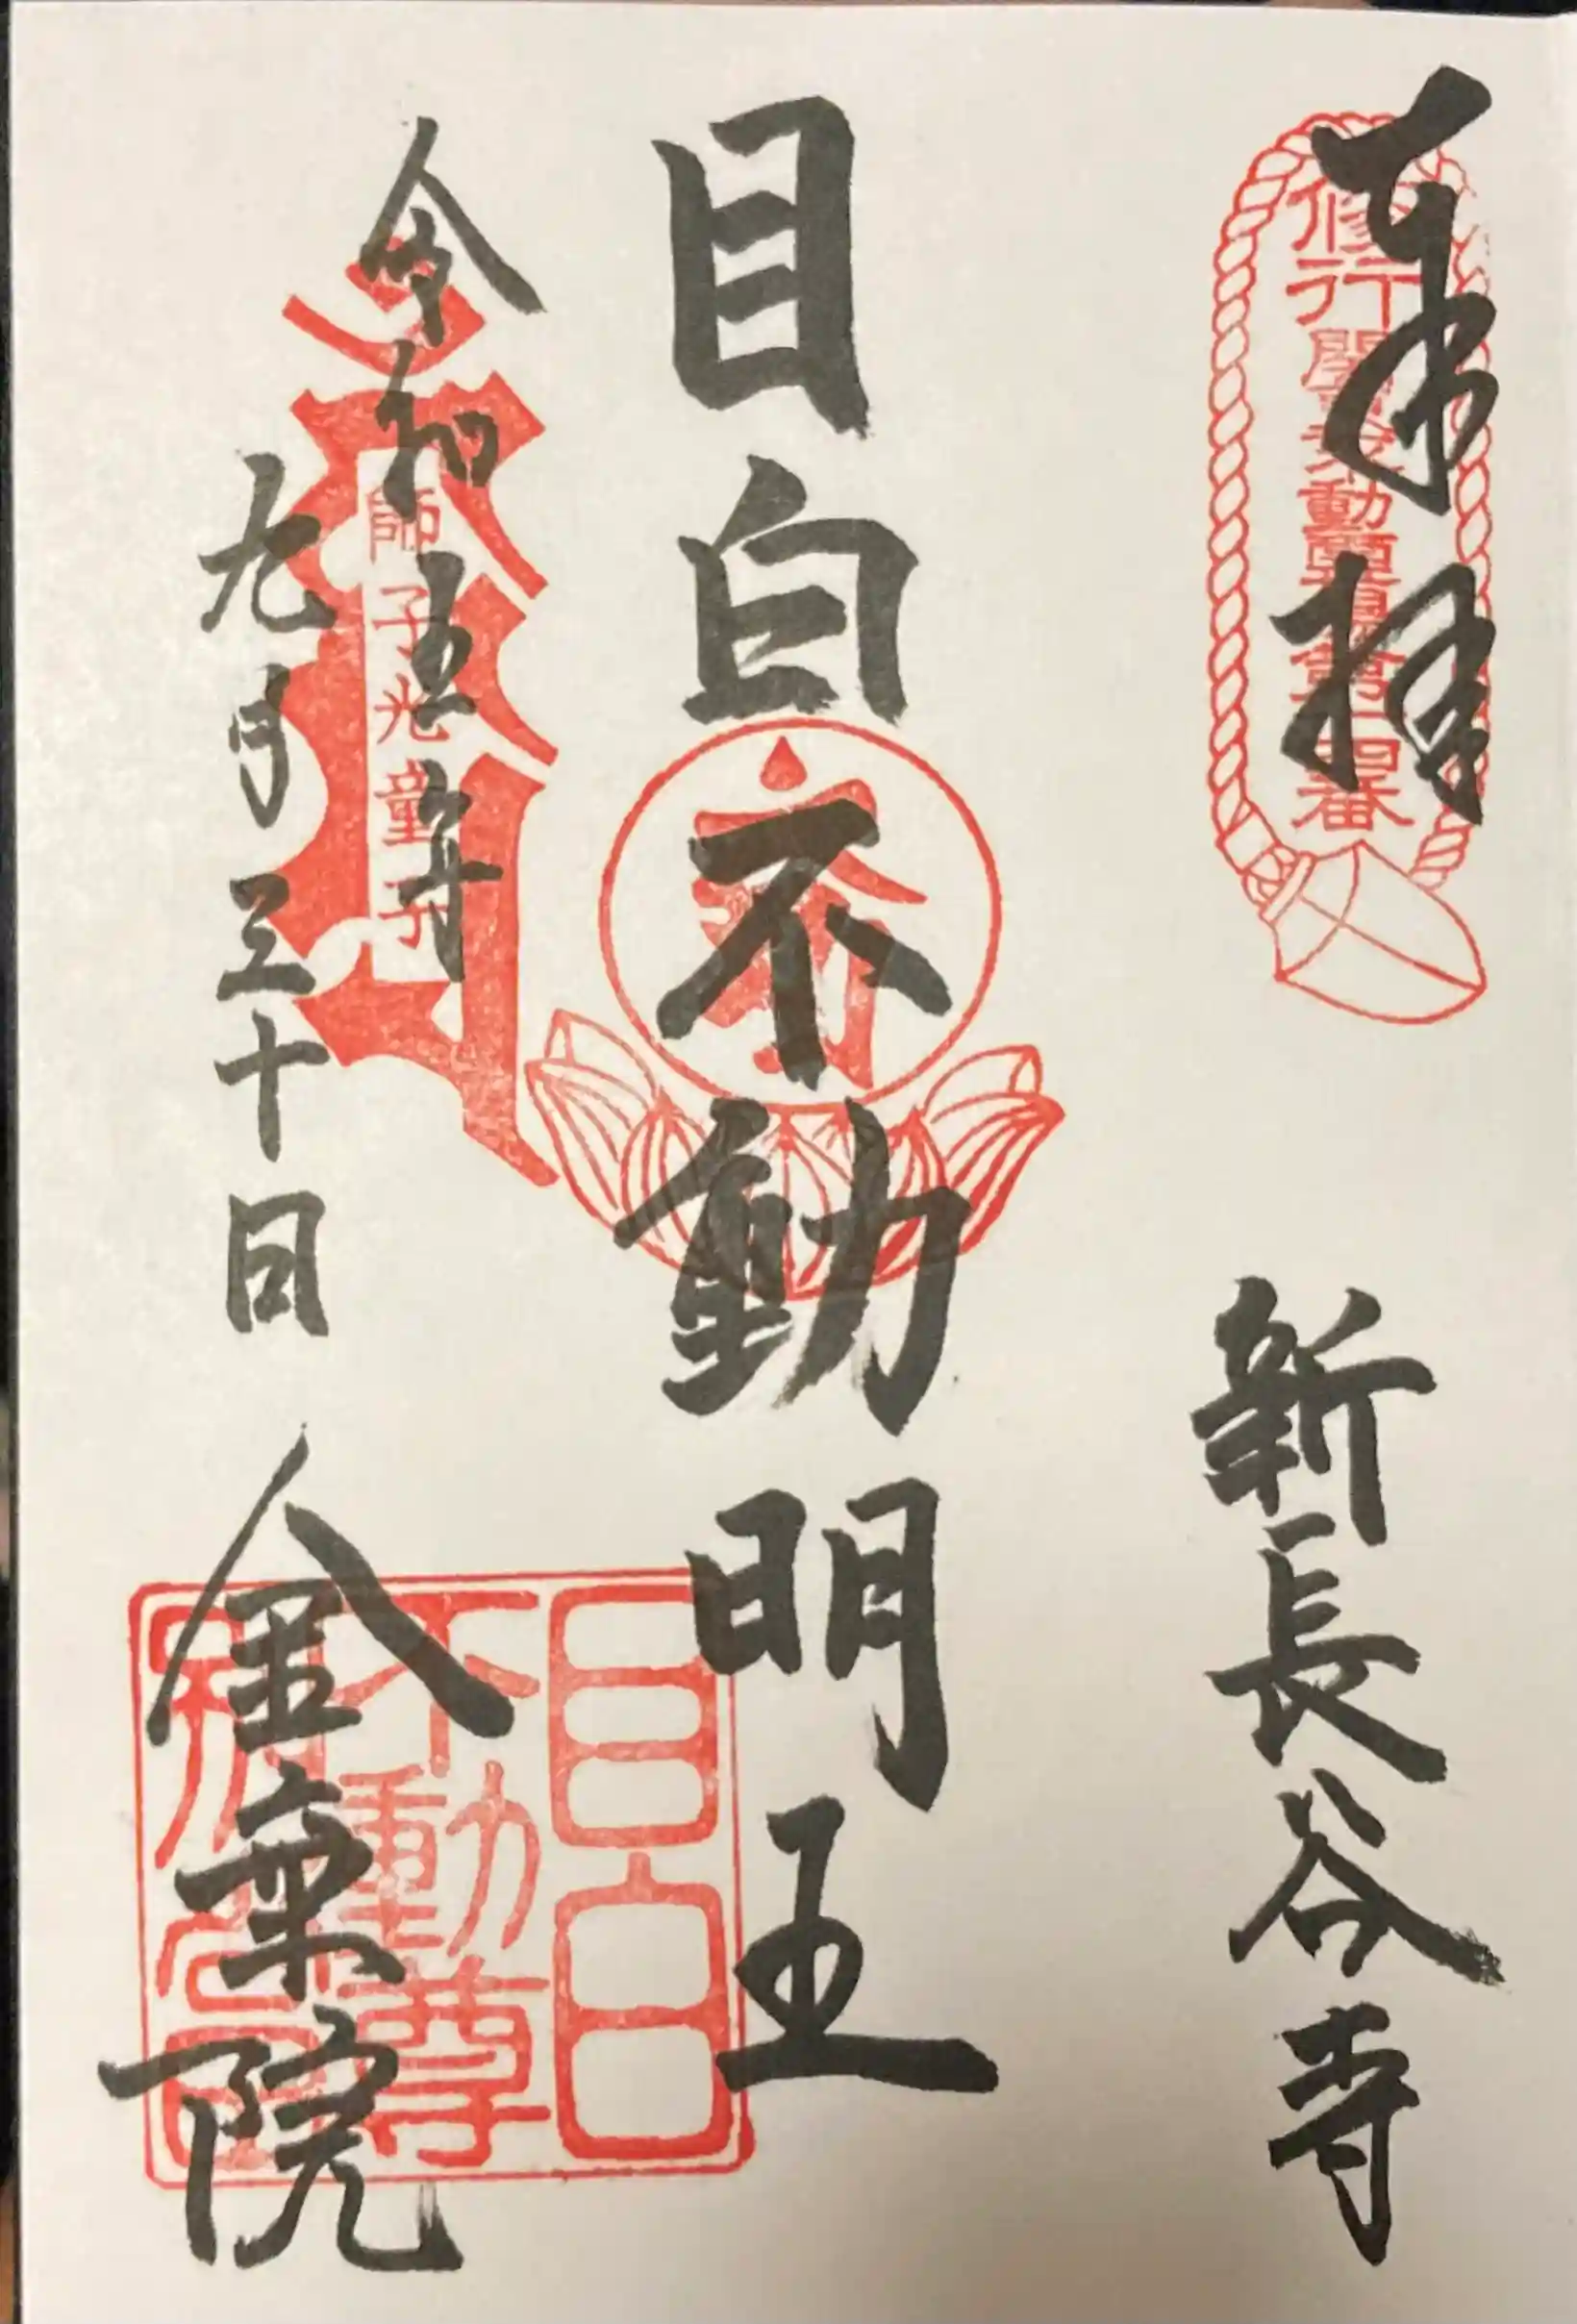 奉拝
修行 関東不動霊場第十四番
新長谷寺
目白不動明王
令和五年
九月三十日
師子光童子
金乗院
目白
不動尊
別當